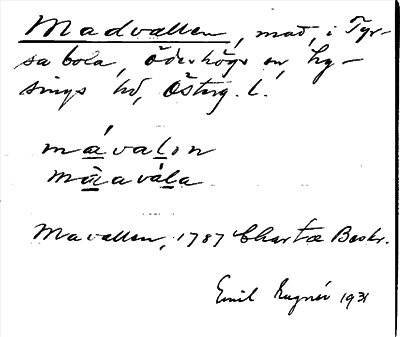 Madvallen, mad, i Tyr-
sabola, Ödeshögs sn, Ly-
sings hd, Östg. l.
mávalon
màavála
Mavallen, 1787 Charta Beskr.
Emil 1931